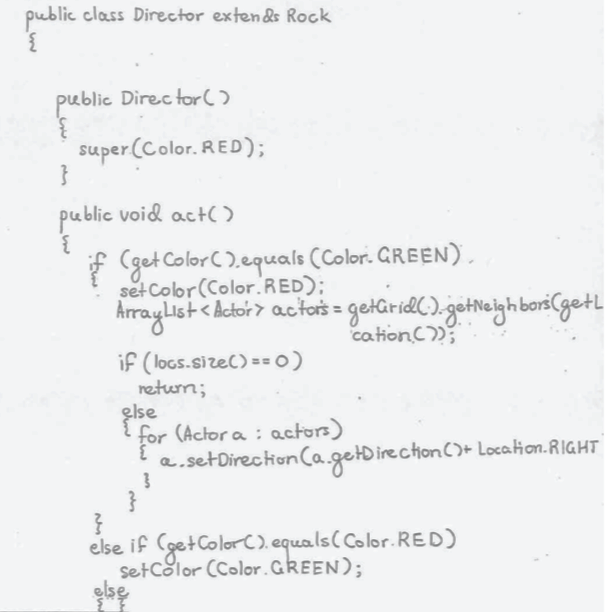 public class Director extends Rock
{
public Director()
{
super(Color.RED);
}
public void act()
{
if (getColor().equals(Color.GREEN)
{
setColor(Color.RED);
ArrayList<Actor> actors = getGrid().getNeighbors(getL
cation());
if (locs.size() == 0)
return;
else
{ for (Actor a : actors)
{ a.setDirection(a.getDirection()+ Location.RIGHT
}
}
}
else if (getColor().equals(Color.RED)
setColor(Color.GREEN);
else
{ }